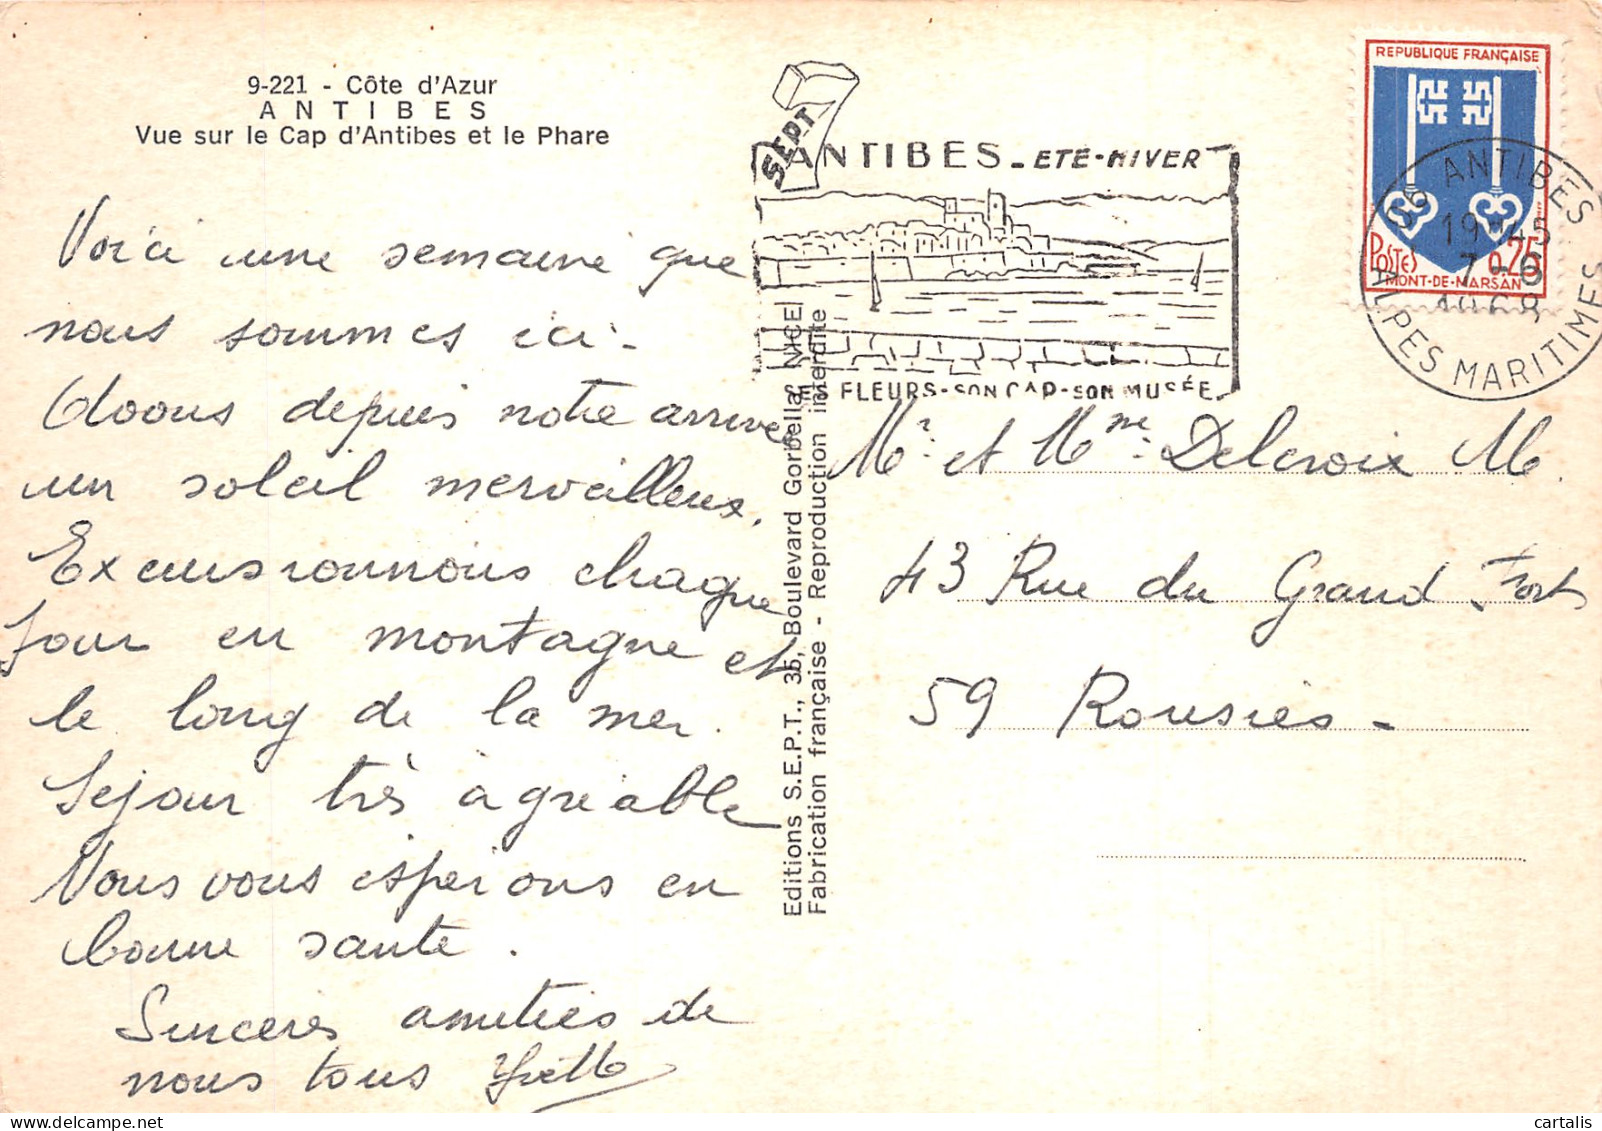 9-221 - Côte d'Azur
ANTIBES
Vue sur le Cap d'Antibes et le Phare
Voici une semaine que
nous sommes ici -
Avons depuis notre arrivée
un soleil merveilleux.
Excursionnons chaque
jour en montagne et
le long de la mer.
Séjour très agréable
Nous vous espérons en
bonne santé.
Sincères amitiés de
nous tous Yvette
SEPT
Editions S.E.P.T., 35, Boulevard Gorbella, NICE
Fabrication française - Reproduction interdite
ANTIBES - ETE-HIVER
FLEURS-SON CAP-SON MUSÉE
REPUBLIQUE FRANÇAISE
POSTES 0,25
MONT-DE-MARSAN
06 ANTIBES
19H45
7-6
1968
ALPES MARITIMES
Mr. et Mme. Delcroix M.
43 Rue du Grand Fort
59 Rousies -
cartalis